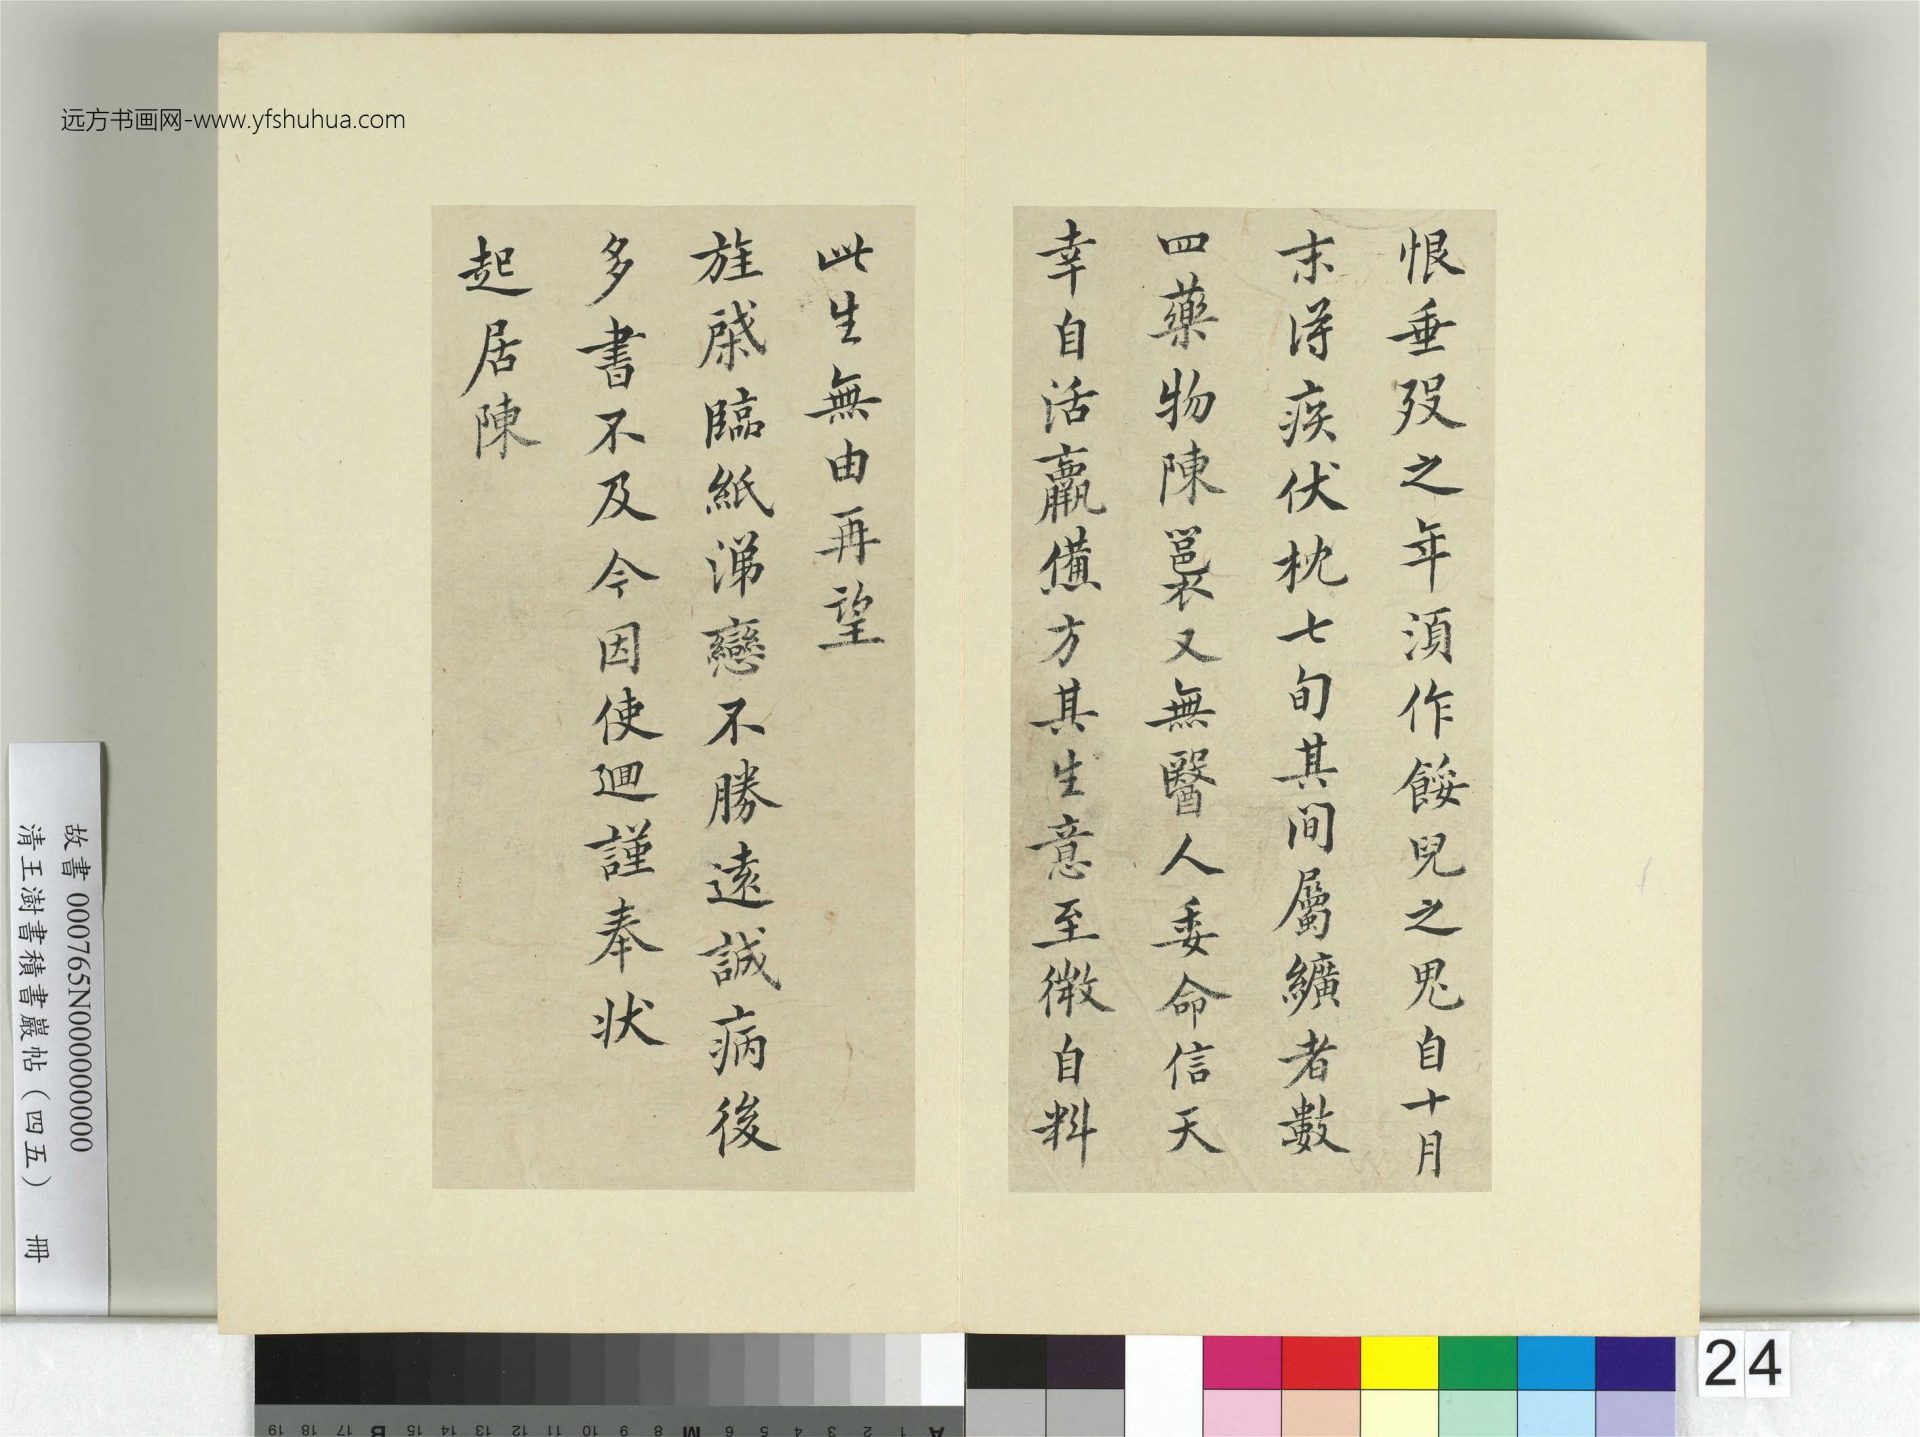 远方书画网-www.yfshuhua.com
恨垂殁之年須作餒皃之鬼自十月
末得疾伏枕七旬其间屬纊者數
四藥物陳裛又無醫人委命信天
幸自活羸憊方其生意至微自料
此生無由再望
旌棨臨紙涕戀不勝遠誠病後
多書不及今因使迴謹奉状
起居陳
故書 000765N000000000
清王澍書積書巖帖（四五） 冊
24